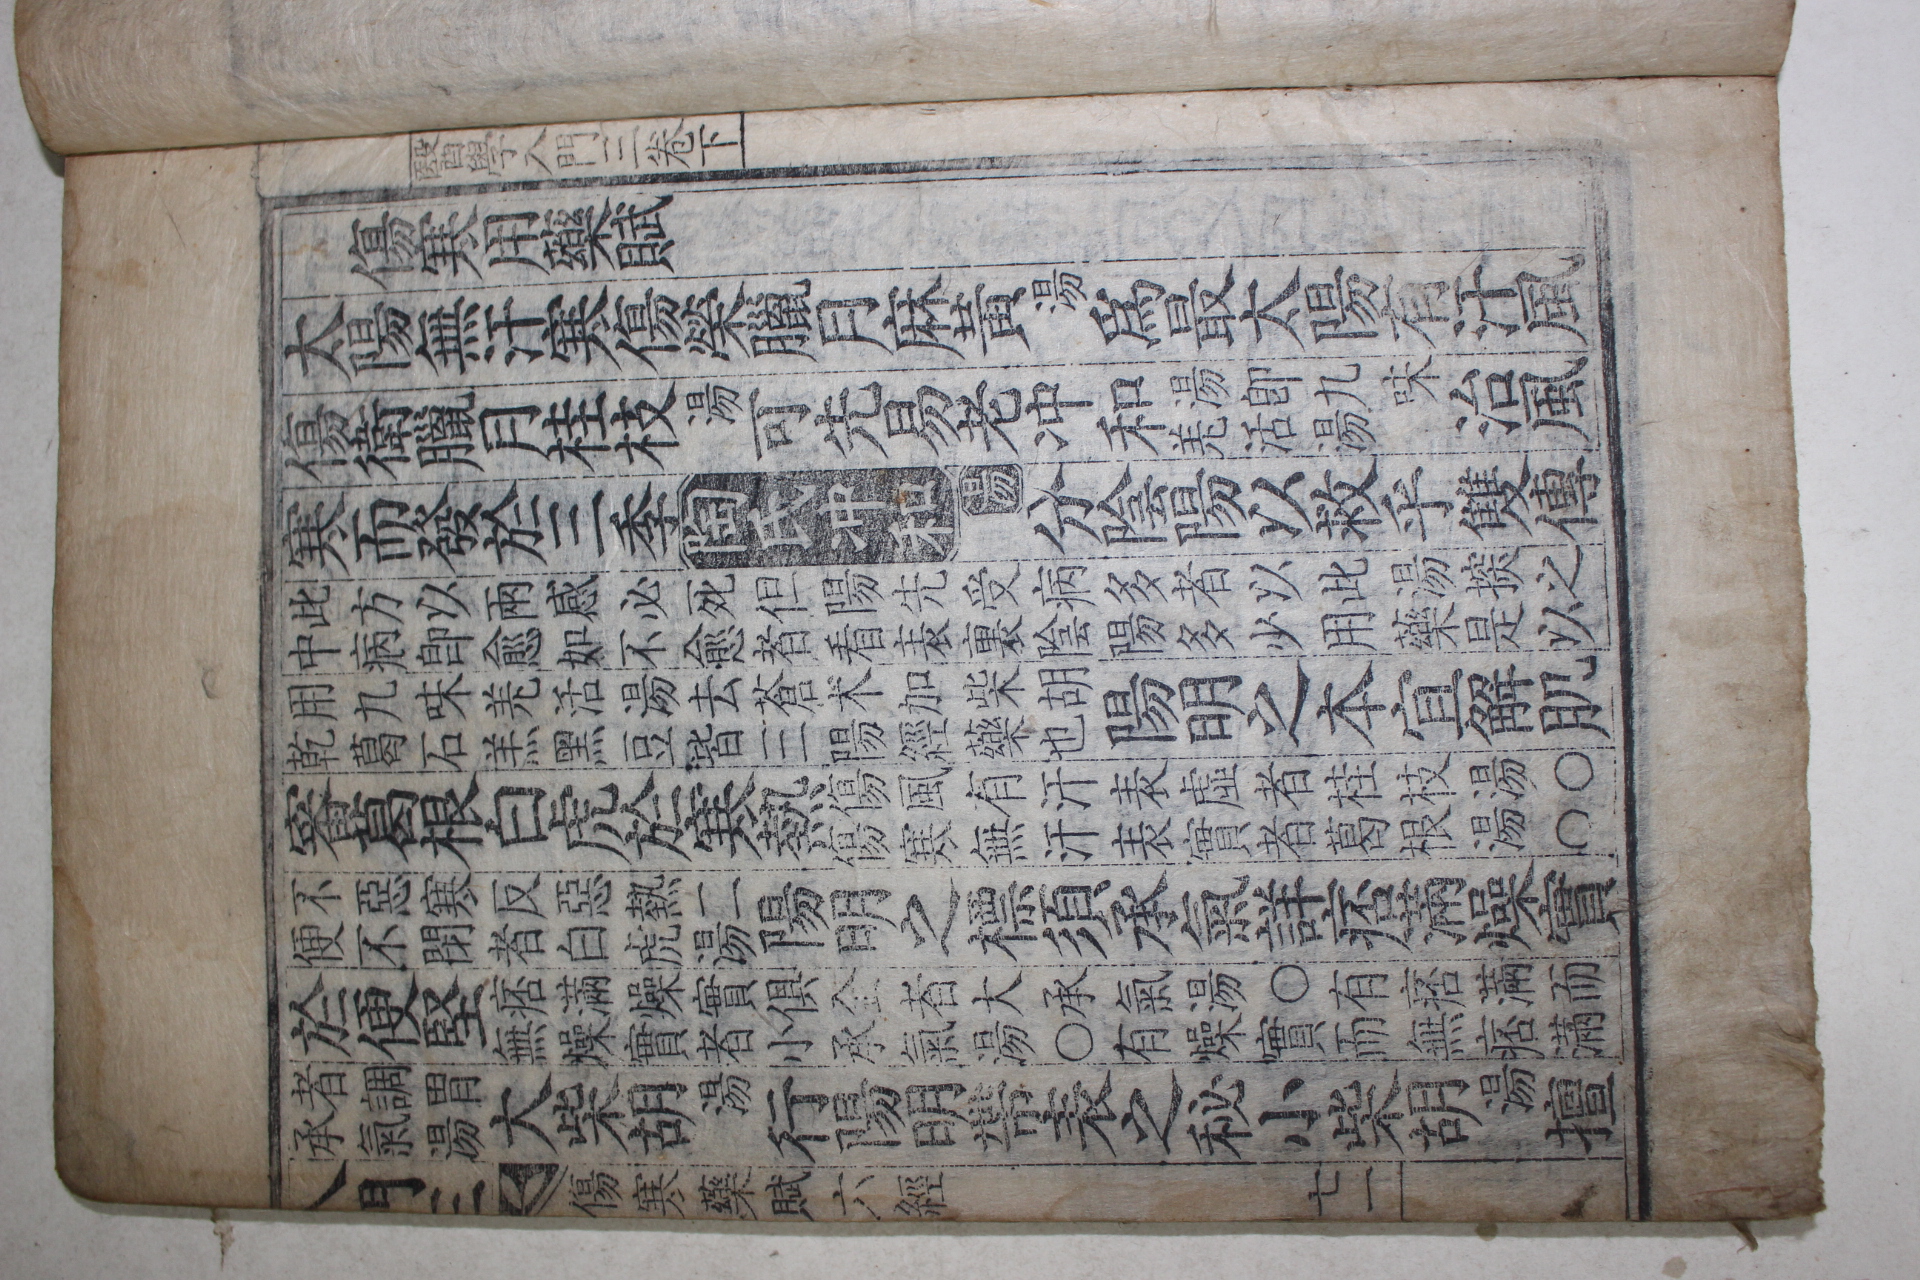 醫學入門三卷下
傷寒用藥賦
太陽無汗寒傷榮臘月麻黃湯爲最太陽有汗風
傷衛臘月桂枝湯可先易老冲和湯卽九味羌活湯治風
寒而發於三季陶氏冲和湯分陰陽以救乎雙傳
此方以兩感必死但陽先受病多者以此湯探之
中病卽愈如不愈者看表裏陰陽多少用藥是以
用九味羌活湯去蒼朮加柴胡
乾葛石羔黑豆皆三陽經藥也陽明之本宜解肌
審葛根白虎於寒熱傷風有汗表虛者桂枝湯○
傷寒無汗表實者葛根湯○
不惡寒反惡熱二
便不閉者白虎湯陽明之標須承氣詳痞滿燥實
於便堅痞滿燥實俱全者大承氣湯○有痞滿而
無燥實者小承氣湯○有燥實而無痞滿
者調胃
承氣湯大柴胡湯行陽明帶表之秘小柴胡湯擅
入門三 傷寒藥賦 六經 七一